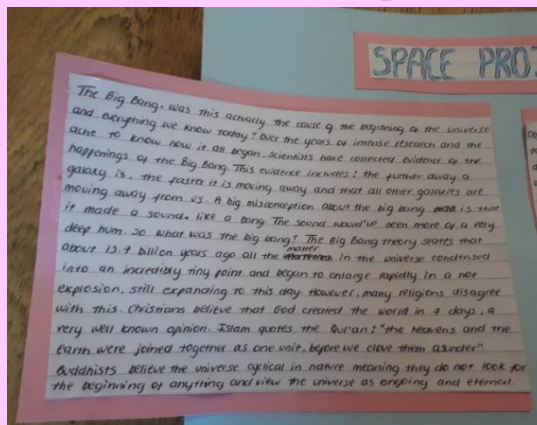 SPACE PROJ
The Big Bang, was this actually the cause of the beginning of the universe
and everything we know today? Over the years of intense research and the
ache to know how it all began, scientists have collected evidence of the
happenings of the Big Bang. This evidence includes: the further away a
galaxy is, the faster it is moving away and that all other galaxies are
moving away from us. A big misconception about the big bang is that
it made a sound, like a bang. The sound would've been more of a very
deep hum. So what was the big bang? The Big Bang theory states that
about 13.7 billion years ago all the matter in the universe condensed
into an incredibly tiny point and began to enlarge rapidly in a hot
explosion, still expanding to this day. However, many religions disagree
with this. Christians believe that God created the world in 7 days, a
very well known opinion. Islam quotes the Qur'an: "the heavens and the
earth were joined together as one unit, before we clove them asunder".
Buddhists believe the universe cyclical in nature meaning they do not look for
the beginning of anything and view the universe as ongoing and eternal.